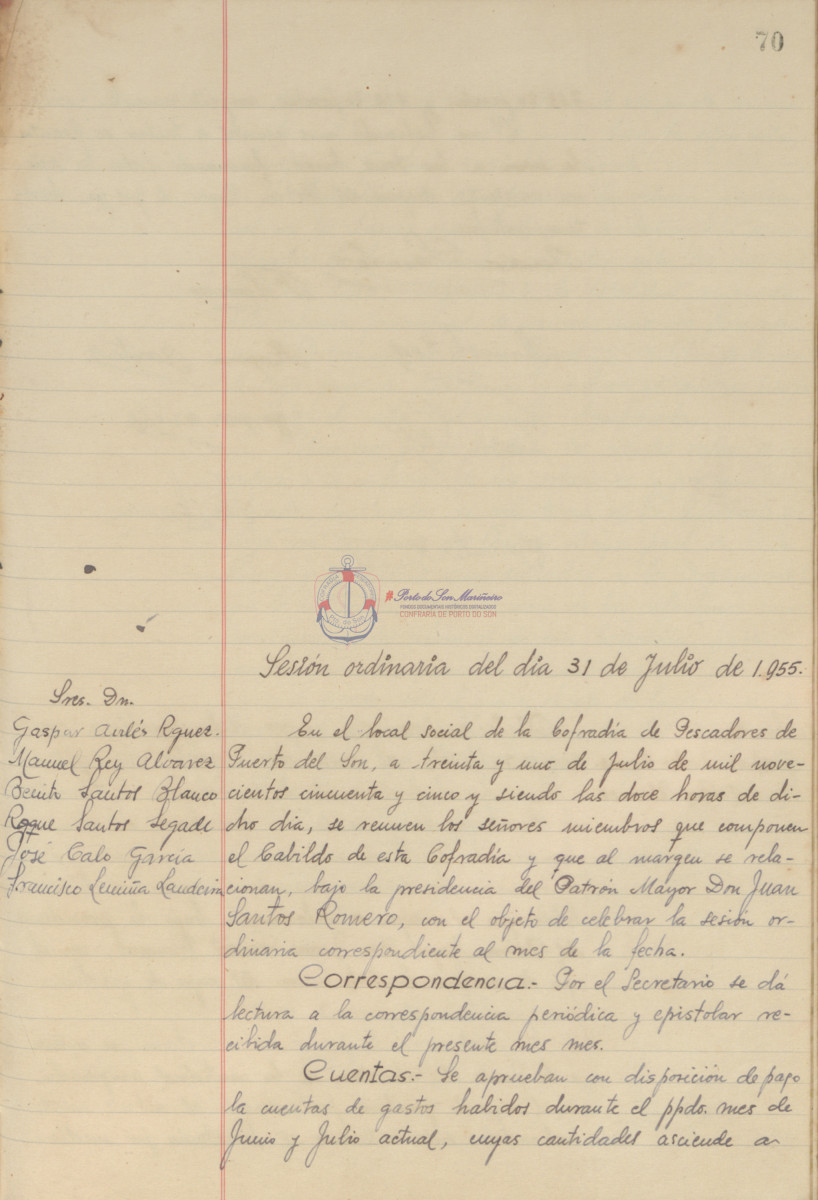 70
#Porto do Son Mariñeiro
FONDOS DOCUMENTAIS HISTÓRICOS DIXITALIZADOS
CONFRARÍA DE PORTO DO SON
Sesión ordinaria del dia 31 de Julio de 1.955.
Sres. Dn.
Gaspar Avilés Rguez.
Manuel Rey Alvarez
Benito Santos Blanco
Roque Santos Segade
José Calo García
Francisco Lemiña Laudeira
En el local social de la Cofradía de Pescadores de
Puerto del Son, a treinta y uno de Julio de mil nove-
cientos cincuenta y cinco y siendo las doce horas de di-
cho dia, se reunen los señores miembros que componen
el Cabildo de esta Cofradía y que al margen se rela-
cionan, bajo la presidencia del Patrón Mayor Don Juan
Santos Romero, con el objeto de celebrar la sesión or-
dinaria correspondiente al mes de la fecha.
Correspondencia.- Por el Secretario se dá
lectura a la correspondencia periódica y epistolar re-
cibida durante el presente mes mes.
Cuentas.- Se aprueban con disposición de pago
la cuentas de gastos habidos durante el ppdo. mes de
Junio y Julio actual, cuyas cantidades asciende a